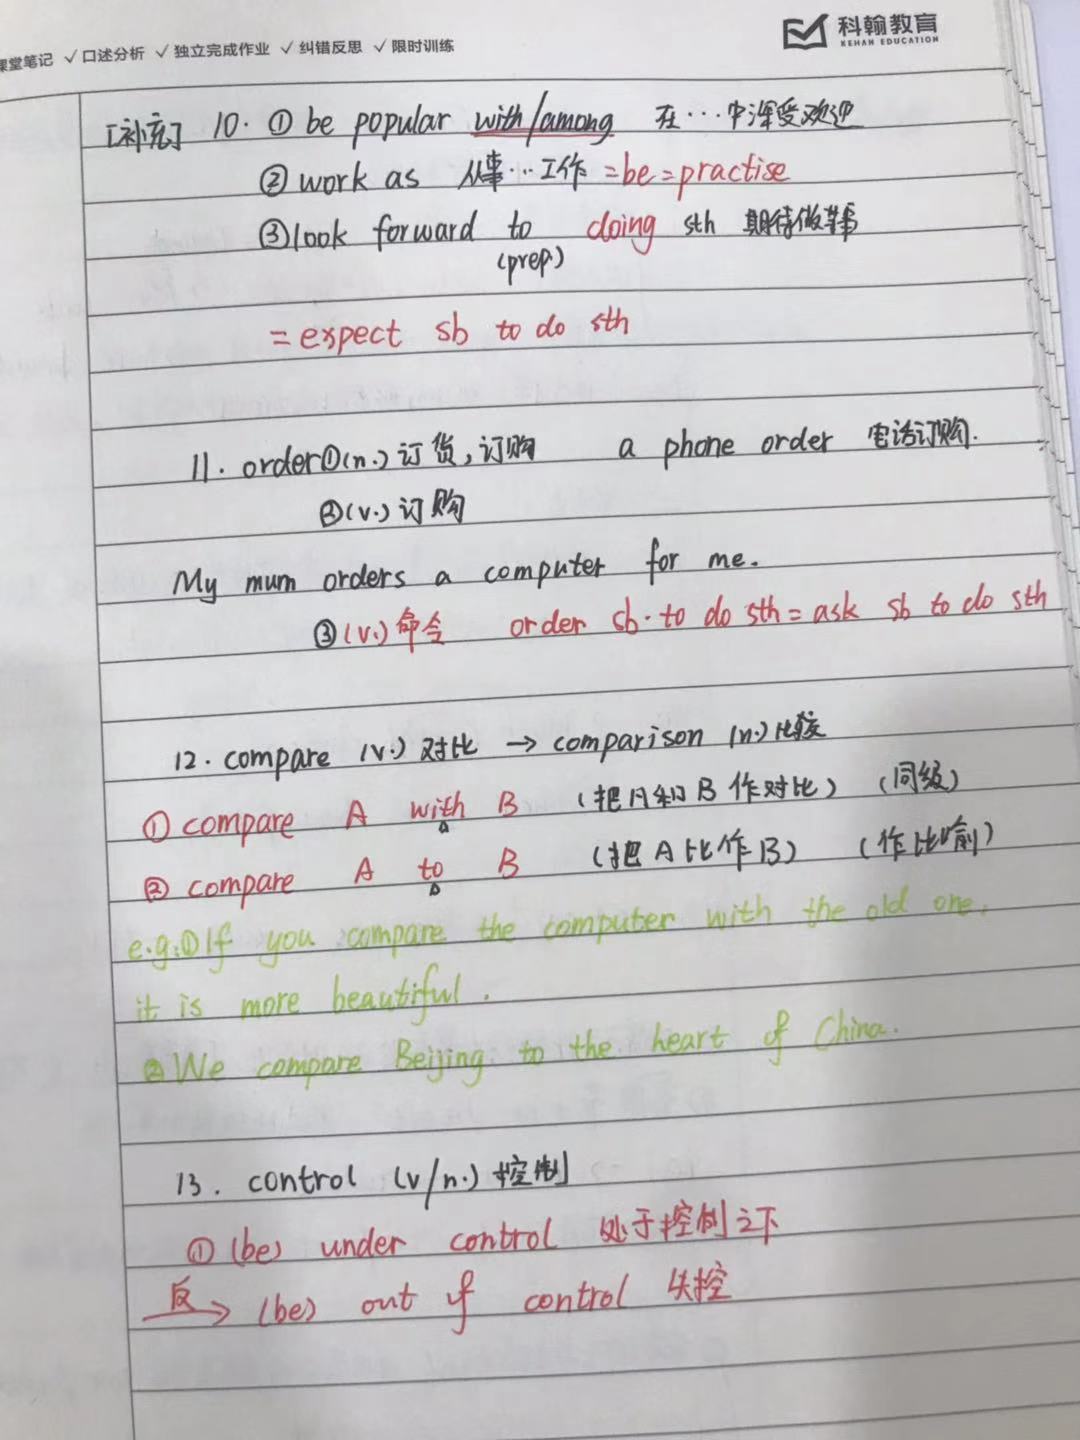 课堂笔记 ✓口述分析 ✓独立完成作业 ✓纠错反思 ✓限时训练
科翰教育
KEHAN EDUCATION
[补充] 10. ① be popular with/among 在…中深受欢迎
② work as 从事…工作 =be=practise
③look forward to doing sth 期待做某事
(prep)
= expect sb to do sth
11. order①(n.)订货,订购 a phone order 电话订购.
②(v.)订购
My mum orders a computer for me.
③(v.)命令 order sb. to do sth = ask sb to do sth
12. compare (v.) 对比 → comparison (n.)比较
① compare A with B (把A和B作对比) (同级)
② compare A to B (把A比作B) (作比喻)
e.g.①If you compare the computer with the old one,
it is more beautiful.
②We compare Beijing to the heart of China.
13. control (v/n.) 控制
① (be) under control 处于控制之下
反→ (be) out of control 失控